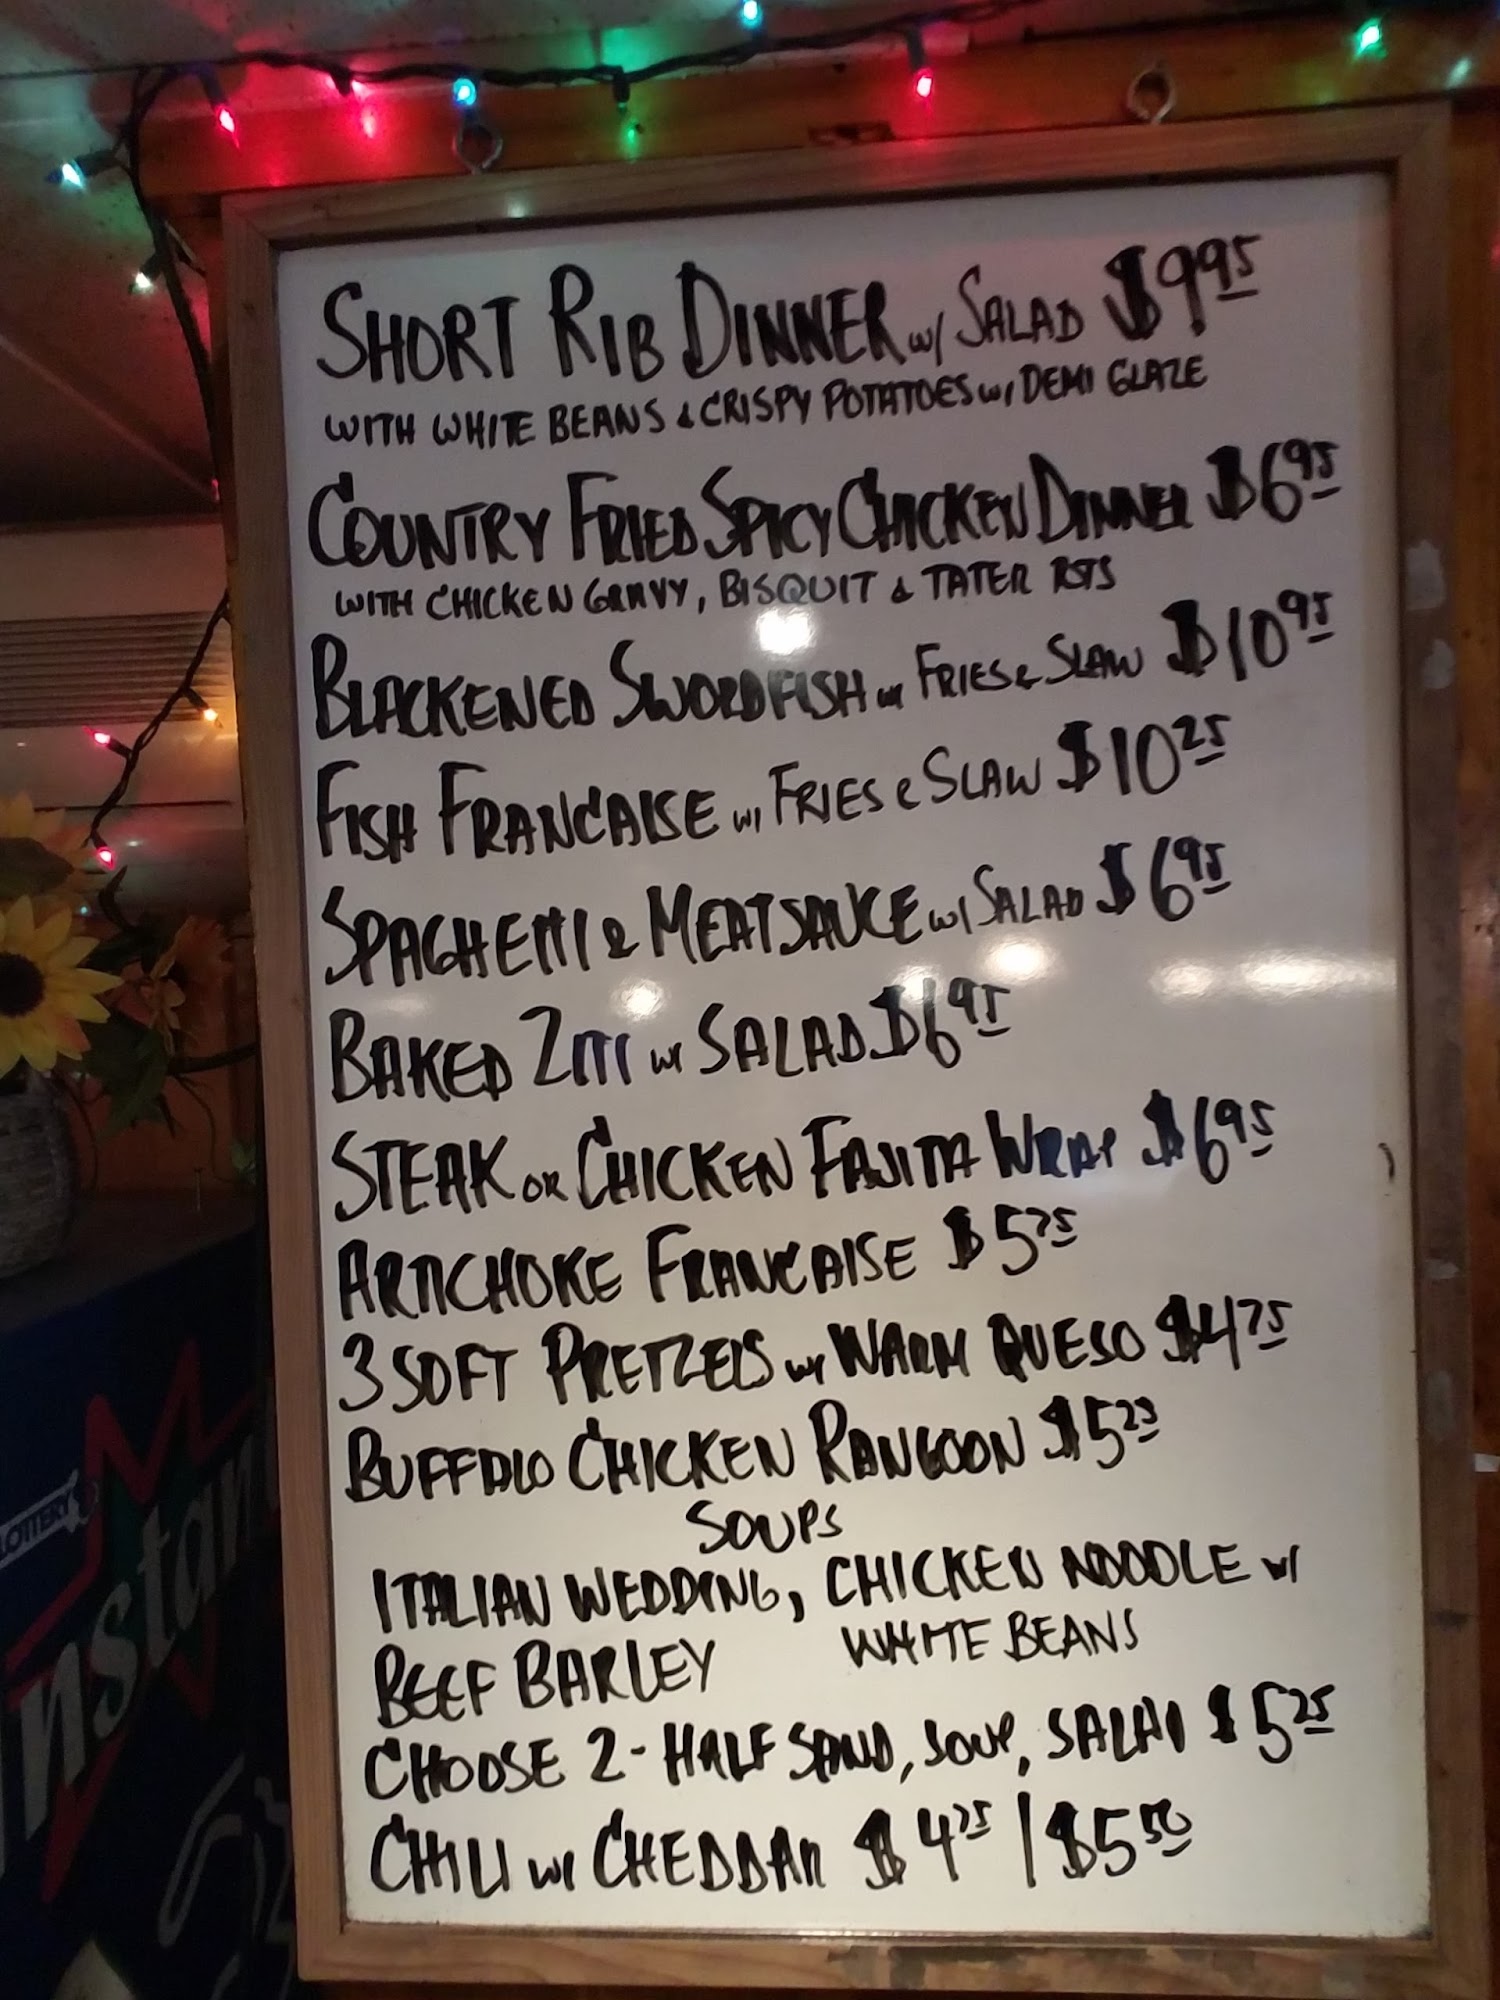 SHORT RIB DINNER w/ SALAD $9.95
WITH WHITE BEANS & CRISPY POTATOES w/ DEMI GLAZE
COUNTRY FRIED SPICY CHICKEN DINNER $6.95
WITH CHICKEN GRAVY, BISQUIT & TATER RSTS
BLACKENED SWORDFISH w/ FRIES & SLAW $10.95
FISH FRANCAISE w/ FRIES & SLAW $10.25
SPAGHETTI & MEATSAUCE w/ SALAD $6.95
BAKED ZITI w/ SALAD $6.95
STEAK OR CHICKEN FAJITA WRAP $6.95
ARTICHOKE FRANCAISE $5.75
3 SOFT PRETZELS w/ WARM QUESO $4.75
BUFFALO CHICKEN RANGOON $5.25
SOUPS
ITALIAN WEDDING, CHICKEN NOODLE w/
BEEF BARLEY WHITE BEANS
CHOOSE 2 - HALF SAND, SOUP, SALAD $5.25
CHILI w/ CHEDDAR $4.75 / $5.50
LOTTERY
Instan